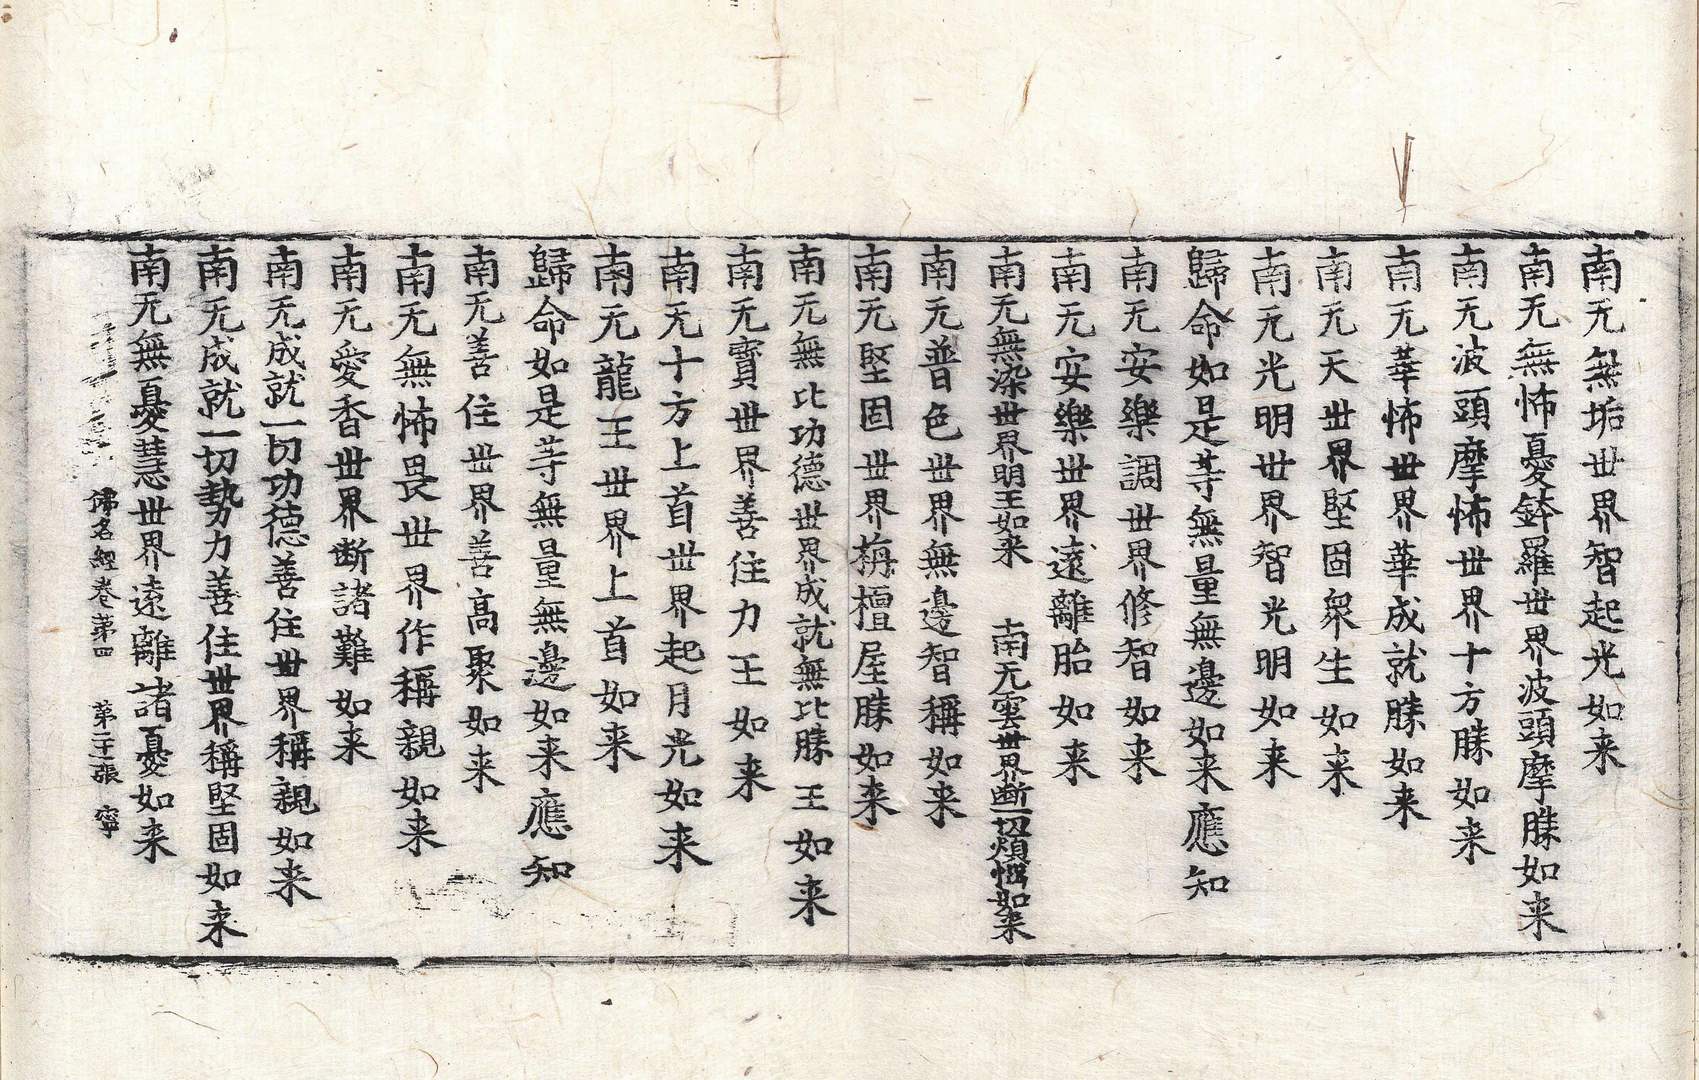 南无無垢世界智起光如来
南无無怖憂鉢羅世界波頭摩勝如来
南无波頭摩怖世界十方勝如来
南无華怖世界華成就勝如来
南无天世界堅固衆生如来
南无光明世界智光明如来
歸命如是等無量無邊如来應知
南无安樂調世界修智如来
南无安樂世界遠離胎如来
南无無染世界明王如来 南无雲世界断一切煩惱如来
南无普色世界無邊智稱如来
南无堅固世界栴檀屋勝如来
南无無比功德世界成就無比勝王如来
南无寶世界善住力王如来
南无十方上首世界起月光如来
南无龍王世界上首如来
歸命如是等無量無邊如来應知
南无善住世界善高聚如来
南无無怖畏世界作稱親如来
南无愛香世界断諸難如来
南无成就一切功德善住世界稱親如来
南无成就一切勢力善住世界稱堅固如来
南无無憂慧世界遠離諸憂如来
佛名經卷第四 第二十一張 寧